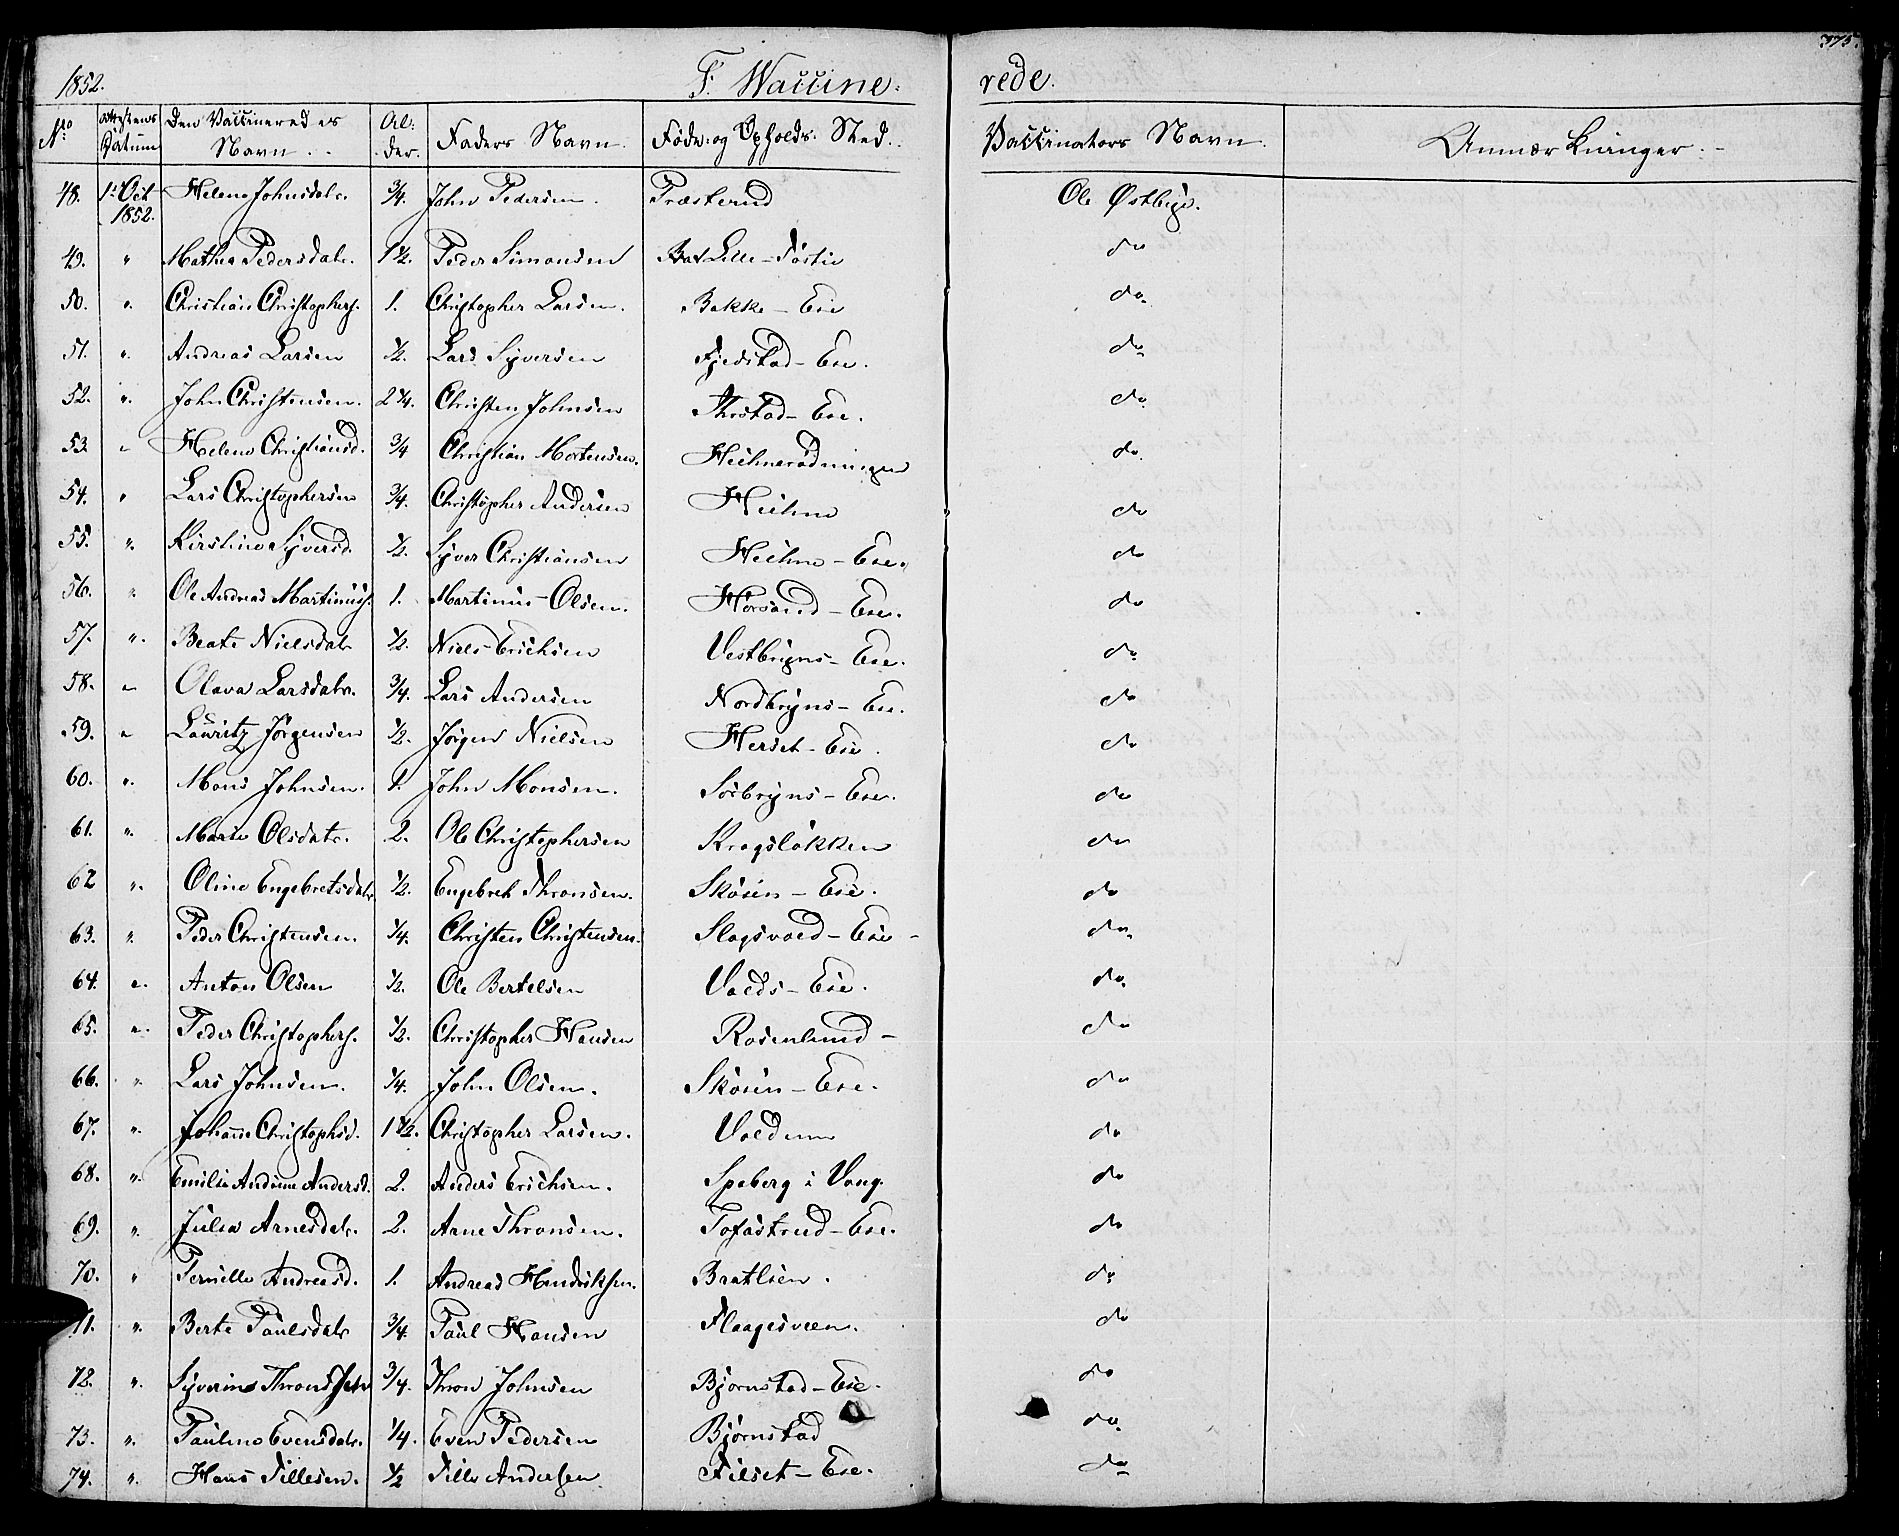 375.
1852. F. Waccine- rede.
No Attestens Datum Den Vaccineredes Navn. Al- der. Faders Navn. Føde- og Opholds-Sted. Vaccinators Navn. Anmærkninger.
48. 1ste Oct 1852. Helene Johnsdatr. 3/4. John Pedersen. Præsterud Ole Østbye.
49. " Mathea Pedersdatr. 1 1/2. Peder Simonsen Lille- do
50. " Christian Christophers. 1. Christopher Larsen. Bakke-Eie do.
51. " Andreas Larsen 1/2. Lars Syversen Fjedstad-Eie. do.
52. " John Christensen. 2 1/4. Christen Johnsen Thostad-Eie. do.
53. " Helene Christiansd. 3/4 Christian Mortensen. do.
54. " Lars Christophersen 3/4. Christopher Andersen do
55. " Kirstine Syversd. 1/2. Syver Christiansen do
56. " Ole Andreas Martinus. 1. Martinus Olsen. Horsand-Eie. do
57. " Beate Nielsdatr 1/2. Niels Erichsen Vestbryns-Eie. do.
58. " Olava Larsdatr. 3/4. Lars Andersen Nordbryns-Eie. do
59. " Lauritz Jørgensen 1/2. Jørgen Nielsen Herset-Eie. do
60. " Mons Johnsen. 1. John Monsen. Sørbryns-Eie. do
61. " Marte Olsdatr. 2. Ole Christophersen Kragsløkken do
62 " Oline Engebretsdatr. 1/2. Engebret Thronsen. Skøien-Eie. do
63. " Peder Christensen. 1/4. Christen Christensen. Slagsvold-Eie do.
64. " Anton Olsen 1/2. Ole Bertelsen Volds-Eie. do.
65. " Peder Christophers. 1/2. Christopher Hansen Rosenlund do
66. " Lars Johnsen. 1/4. John Olsen. Skøien-Eie. do
67. " Johanne Christophsd. 1 1/2. Christopher Larsen. Voldum do
68. " Emilie Andrine Andersd. 2. Anders Erichsen. Spaberg i Vang. do
69. " Julia Arnesdatr. 2. Arne Thronsen. Tofastrud-Eie. do
70. " Pernille Andreasd. 1. Andreas Hendriksen. Bratlien. do
71. " Berte Paulsdatr 3/4. Paul Hansen Flaagesveen. do
72. " Syverine Thronsdatr 3/4. Thron Johnsen Bjørnstad-Eie. do
73. " Pauline Evensdatr. 1/4. Even Pedersen Bjørnstad do.
74. " Hans Tillesen. 1/2 Tille Andersen Filset-Eie. do